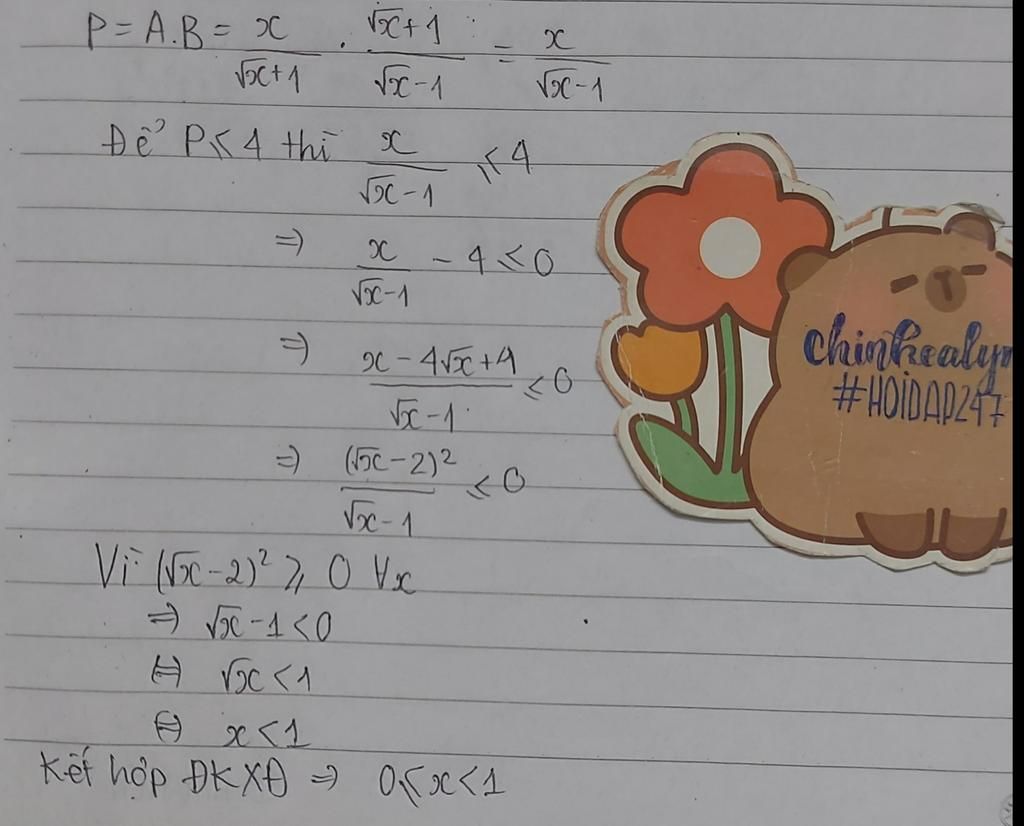 P = A.B = x/(√x+1) . (√x+1)/(√x-1) = x/(√x-1)
Để P ≤ 4 thì x/(√x-1) ≤ 4
⇒ x/(√x-1) - 4 ≤ 0
⇒ (x-4√x+4)/(√x-1) ≤ 0
⇒ (√x-2)²/(√x-1) ≤ 0
Vì (√x-2)² ≥ 0 ∀x
⇒ √x-1 < 0
⇔ √x < 1
⇔ x < 1
Kết hợp ĐKXĐ ⇒ 0 ≤ x < 1
#HOIDAP247